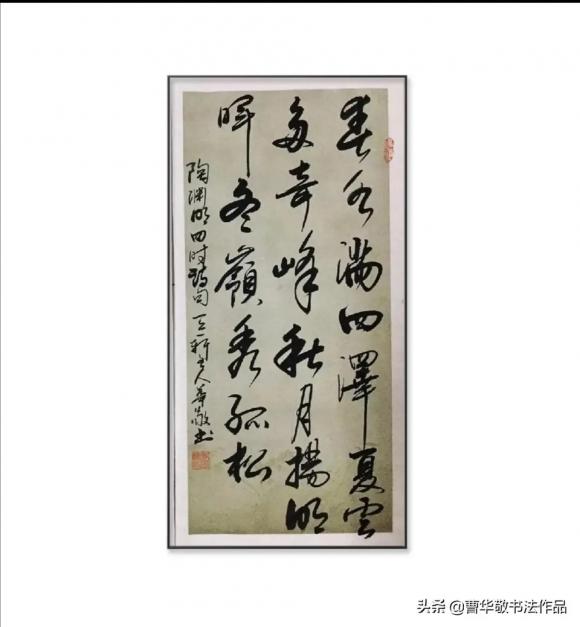 春水满四澤夏雲
多奇峰秋月揚明
晖冬嶺秀孤松
陶渊明四时诗句 主人華敬书
头条 @曹华敬书法作品